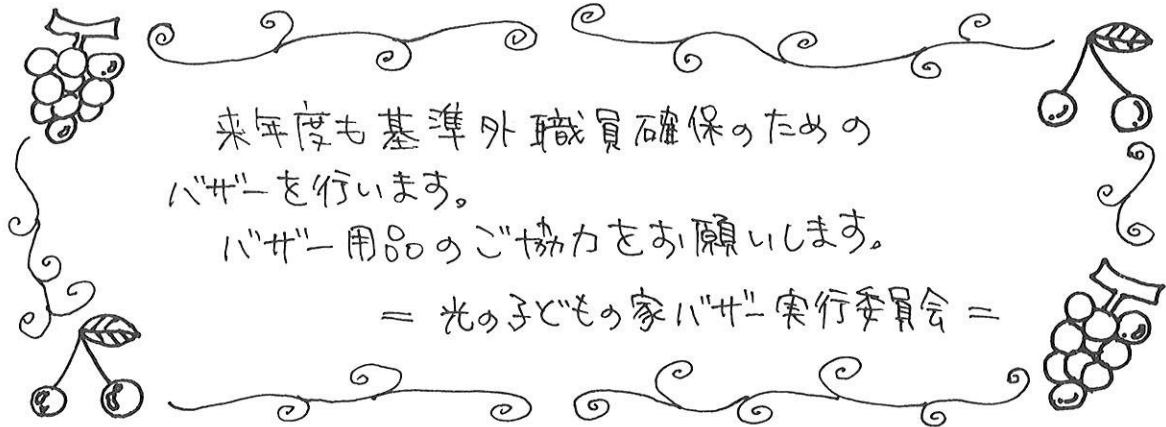 来年度も基準外職員確保のための
バザーを行います。
バザー用品のご協力をお願いします。
= 光の子どもの家バザー実行委員会 =